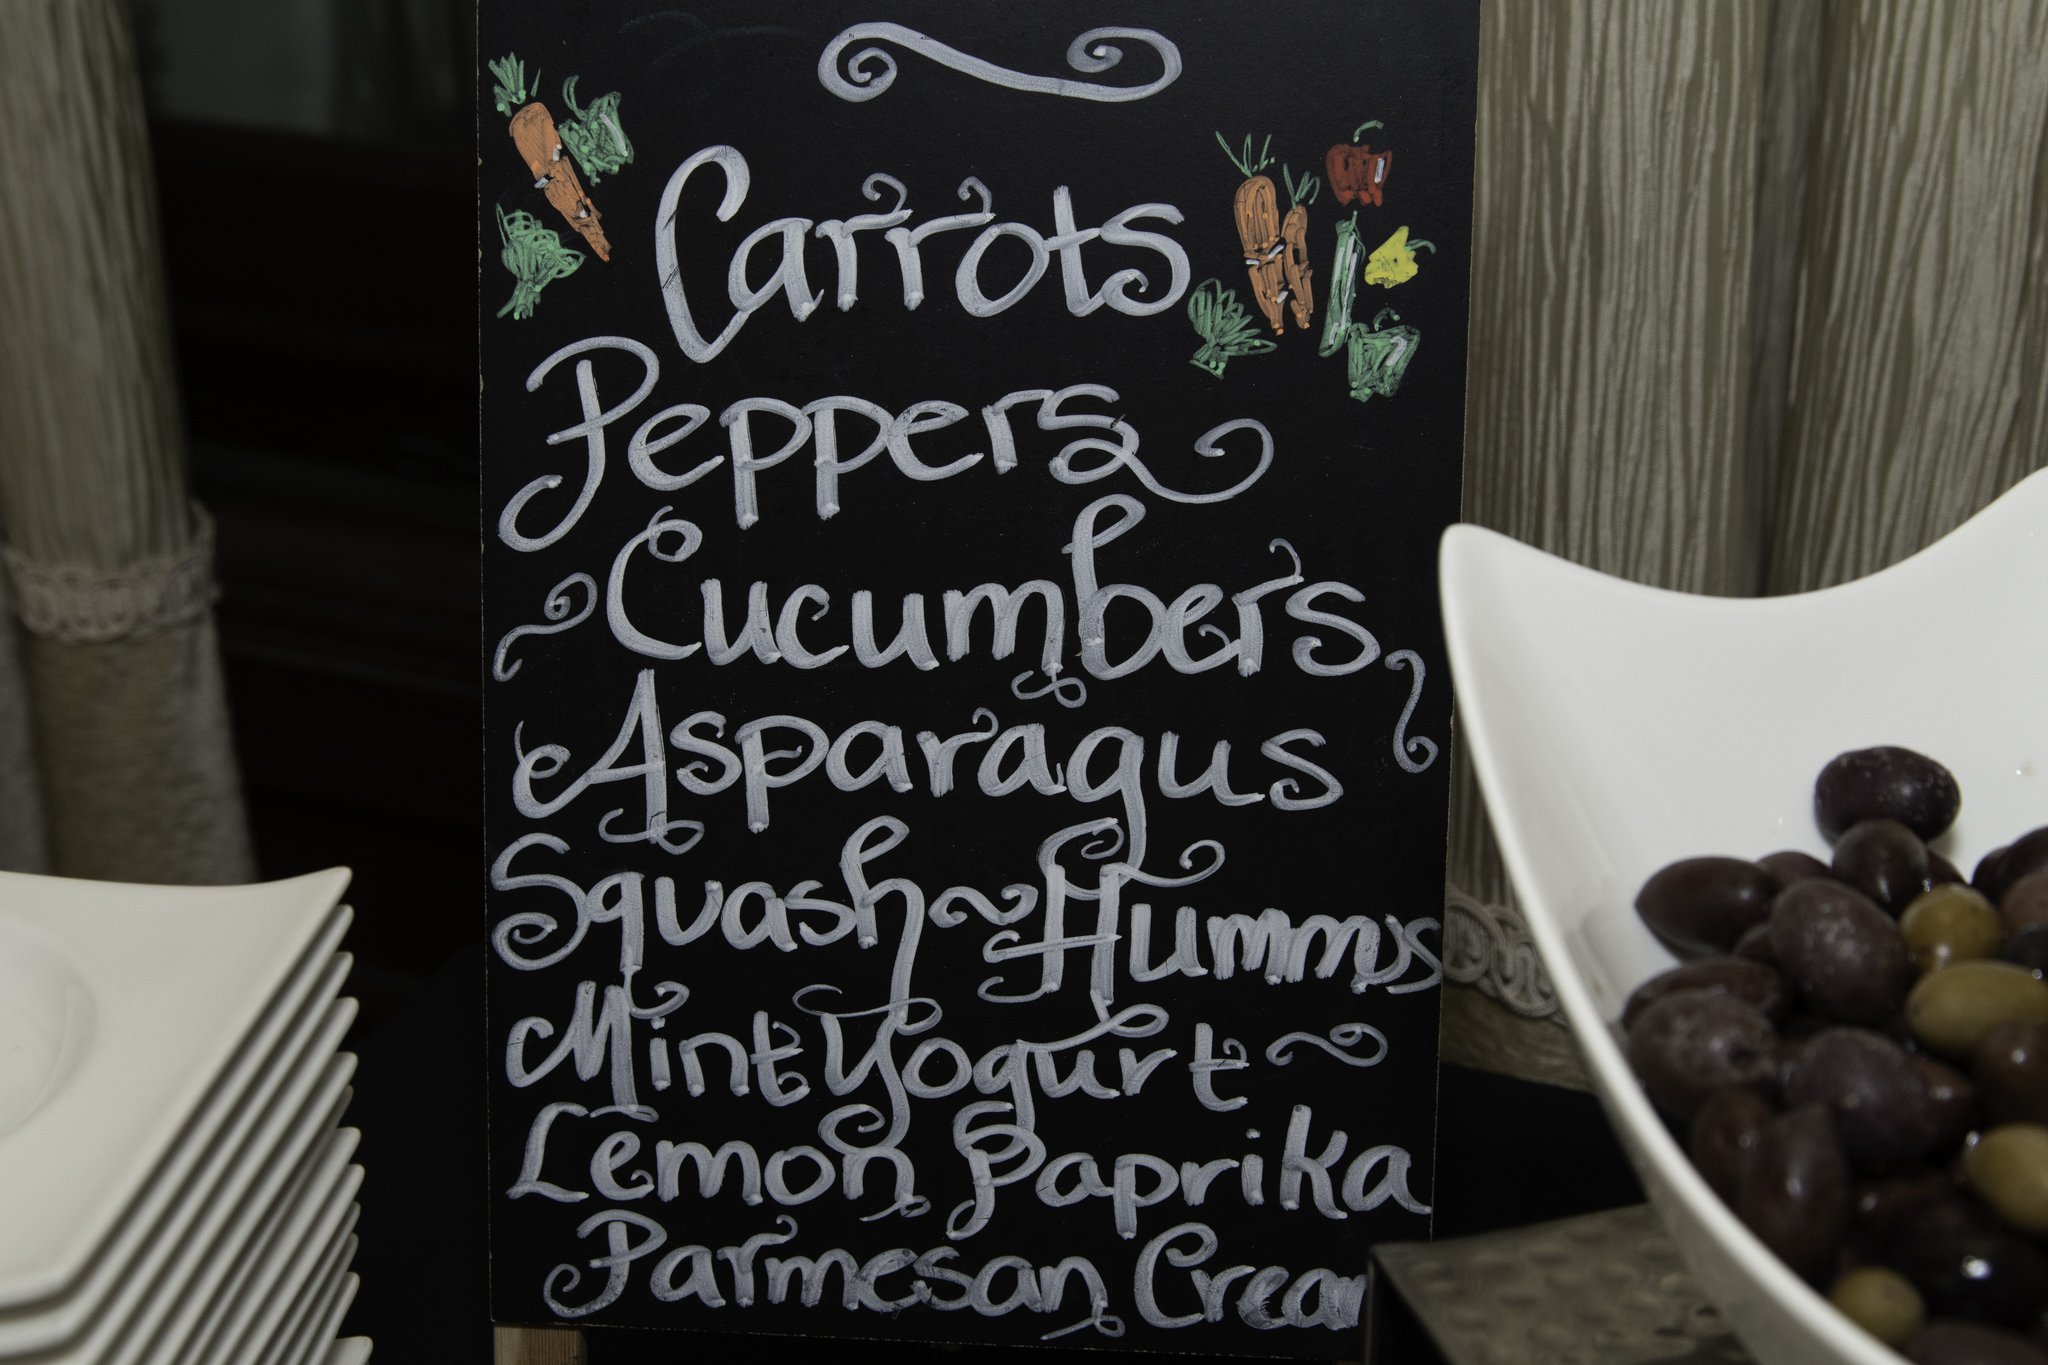 Carrots
Peppers
Cucumbers
Asparagus
Squash ~ Hummus
Mint Yogurt ~
Lemon Paprika
Parmesan Crea